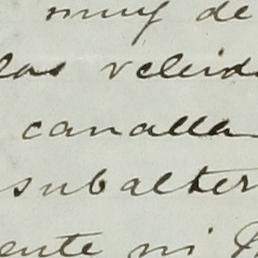 muy de
las veleid
canalla
subalter
ente ni